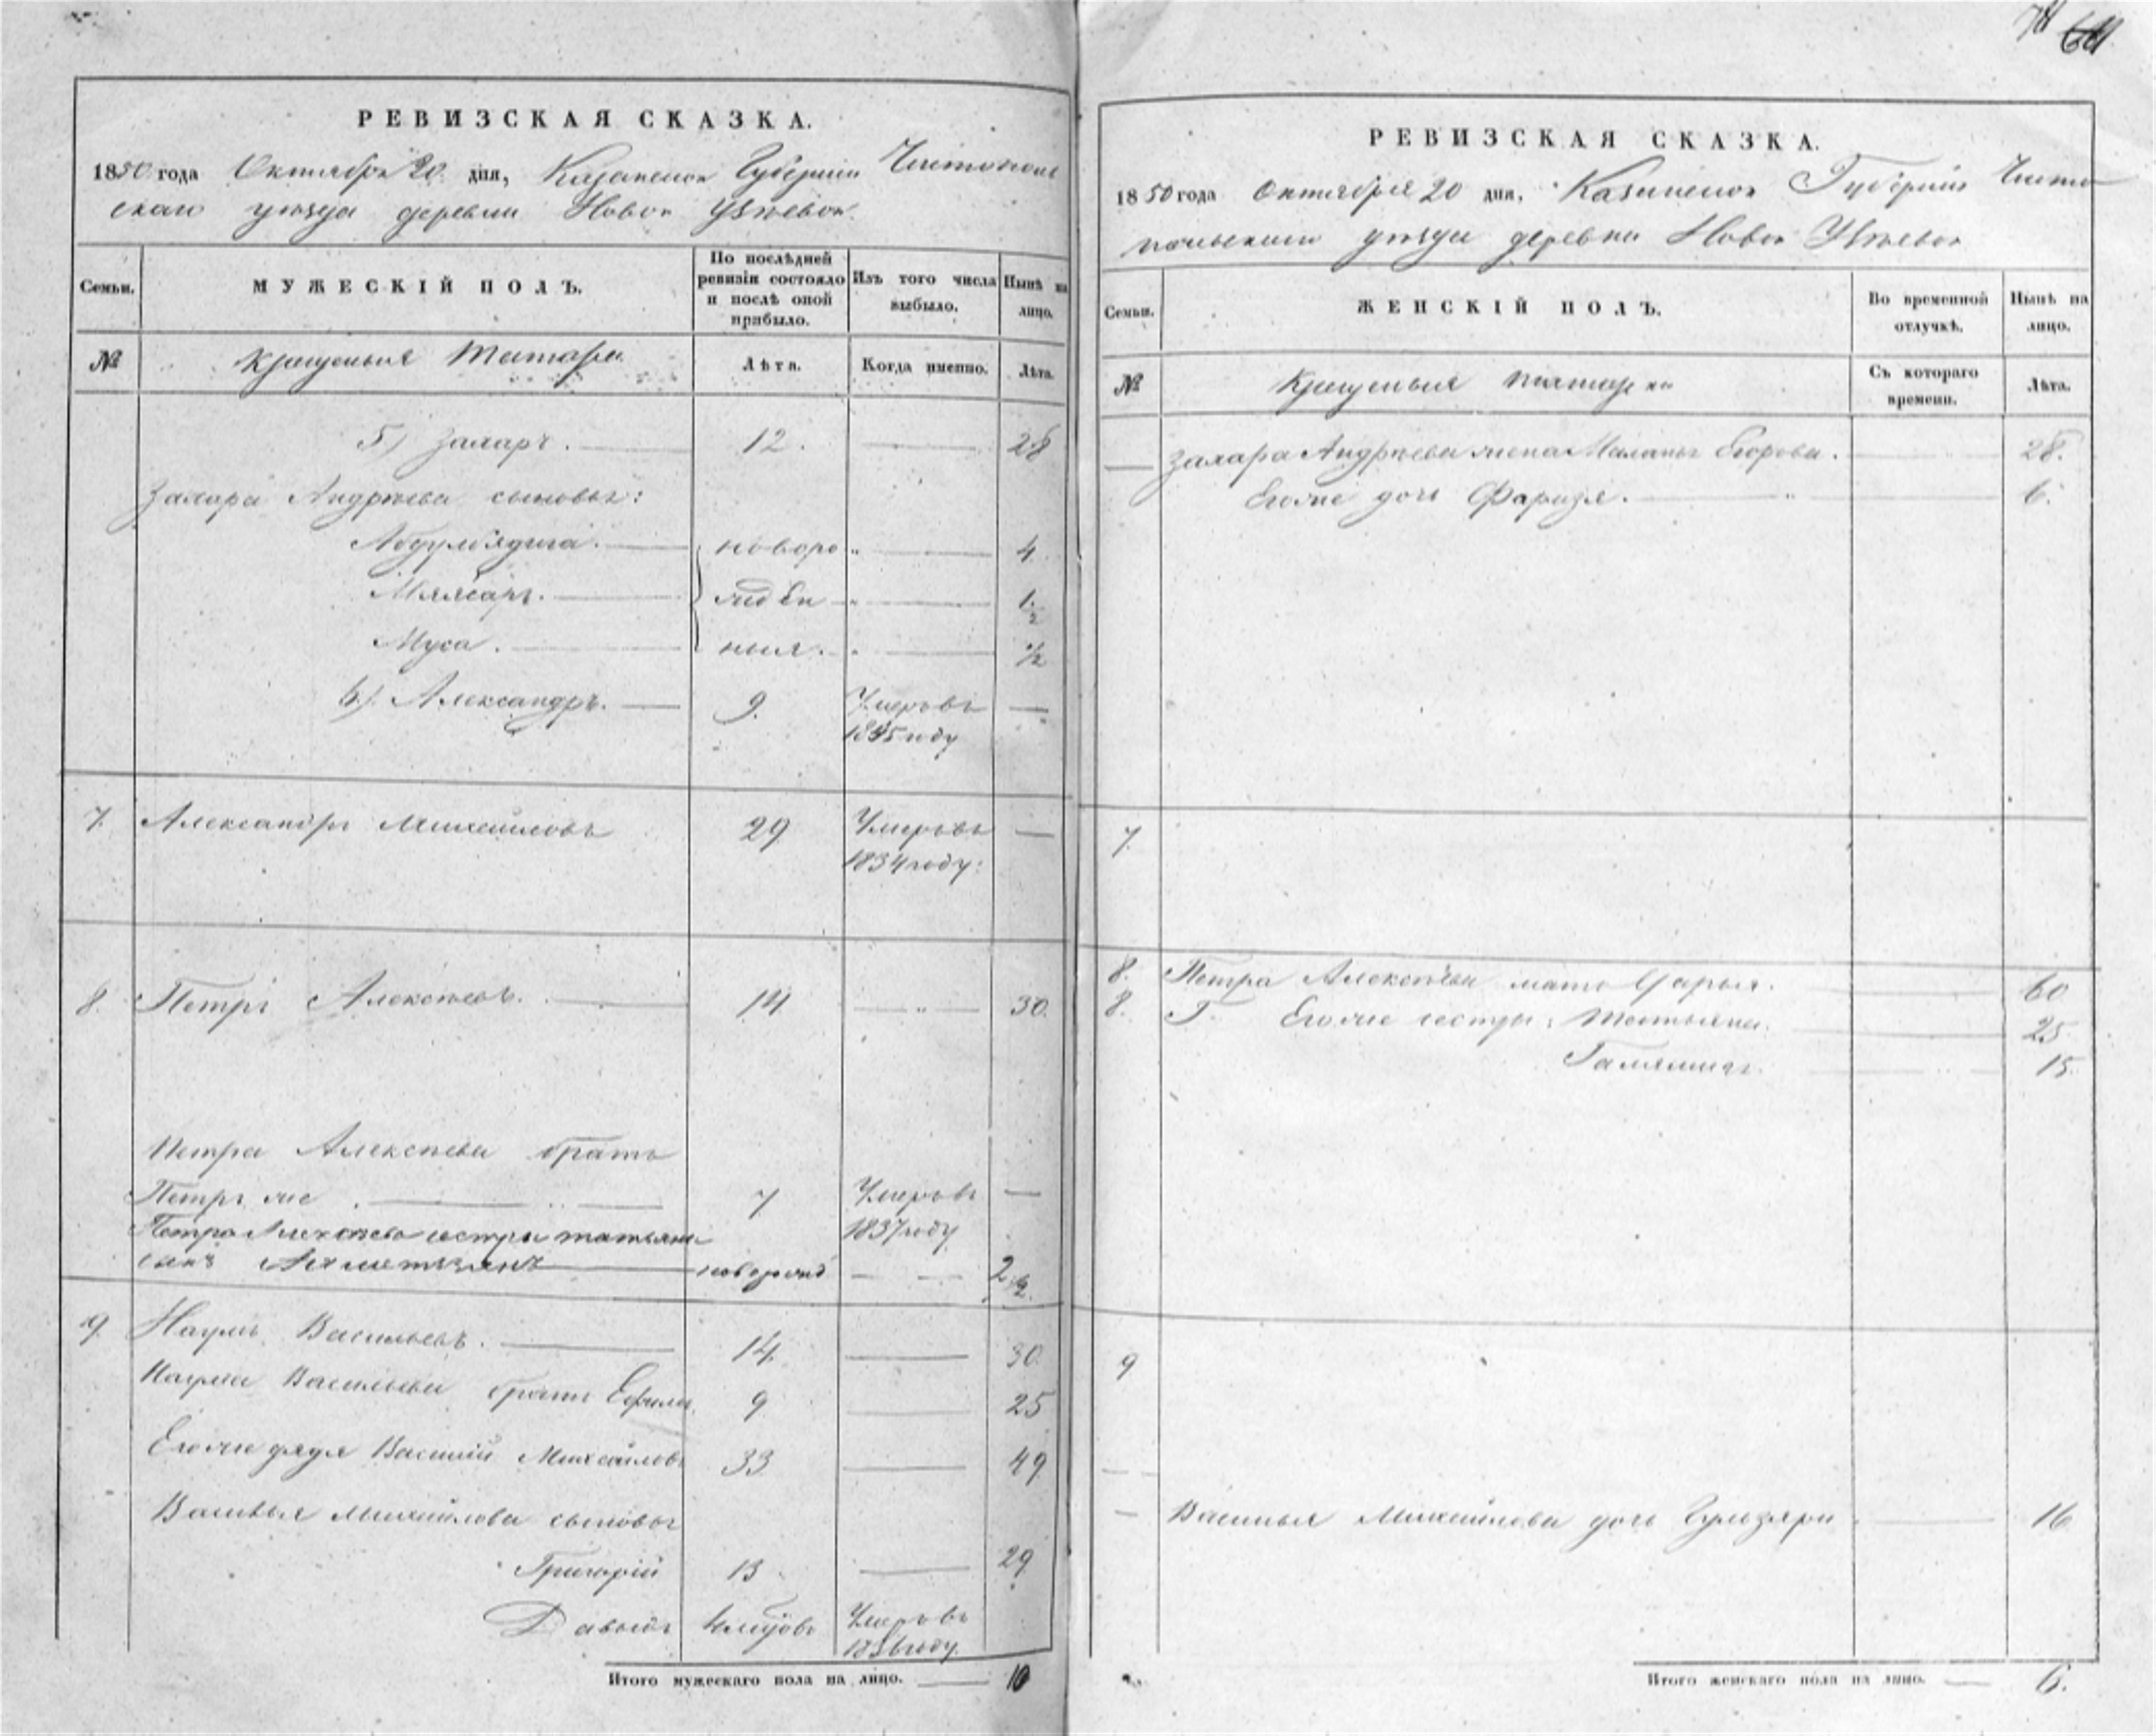 РЕВИЗСКАЯ СКАЗКА.
1850 года Октября 20 дня, Казанской Губернии Чистополь
скаго уѣзда деревни Новой Узѣевой
Семьи.
МУЖЕСКІЙ ПОЛЪ.
По послѣдней ревизіи состояло и послѣ оной прибыло.
Изъ того числа выбыло.
Нынѣ на лицо.
№
Крещеныя Татары
Лѣта.
Когда именно.
Лѣта.
5) Захаръ. 12. 28
Захара Андрѣева сыновья:
новоро 4
1 1/2
Муса. ныя. 1/2
6) Александръ. 9. Умеръ въ
году
7. Александръ Михайловъ 29 Умеръ въ
1834 году.
8. Петръ Алексѣевъ. 14 30.
Петра Алексѣева братъ
Петръ же 7 Умеръ въ
1837 году
Петра Алексѣева сестры татьяны
сынъ Ахметзянъ новорожд 2 1/2
9. Наумъ Васильевъ. 14. 30.
Наума Васильева братъ Ефимъ 9 25
Егоже дядя Василій Михайловъ 33 49
Василья Михайлова сыновья
Григорій 13 29
Давыдъ Умеръ въ
1836 году.
Итого мужескаго пола на лицо. 10
74 64
РЕВИЗСКАЯ СКАЗКА.
1850 года Октября 20 дня, Казанской Губерніи Чисто
польскаго уѣзда деревни Новой Узѣевой
Семьи.
ЖЕНСКІЙ ПОЛЪ.
Во временной отлучкѣ.
Нынѣ на лицо.
№
Крещеныя татарки
Съ котораго времени.
Лѣта.
Захара Андрѣева жена Маланья Егорова. 28.
Егоже дочь Фаризя. 6.
7.
8. Петра Алексѣева мать Сарыя. 60
8. Егоже сестры: Татьяна. 25
15.
9
Василья Михайлова дочь Гульзяри 16
Итого женскаго пола на лицо. 6.